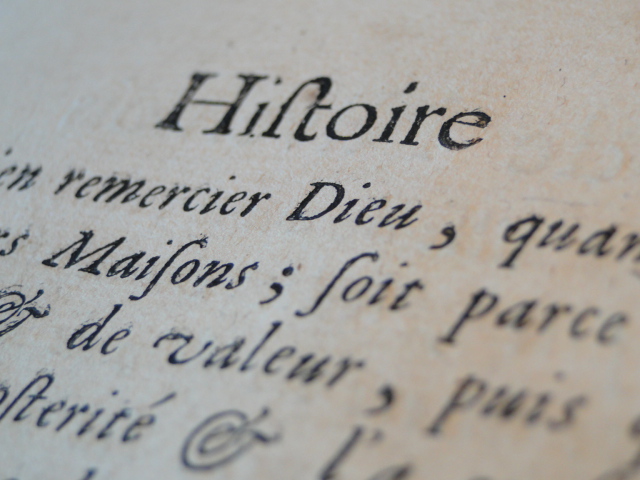 Hiſtoire
en remercier Dieu, quan
s Maiſons; ſoit parce
& de valeur, puis
oſterité & l'a